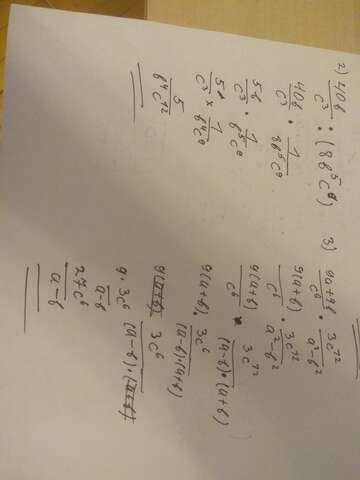 2) 40b/c³ : (8b⁵c⁹)
40b/c³ · 1/8b⁵c⁹
5b/c³ · 1/b⁵c⁹
5b/c³ × 1/b⁴c⁹
5/b⁴c¹²
3) 9a+9b/c⁶ · 3c¹²/a²-b²
9(a+b)/c⁶ · 3c¹²/a²-b²
9(a+b)/c⁶ · 3c¹²/(a-b)·(a+b)
9(a+b) · 3c⁶/(a-b)·(a+b)
9(a+b) 3c⁶/(a-b)·(a+b)
9·3c⁶/a-b
27c⁶/a-b